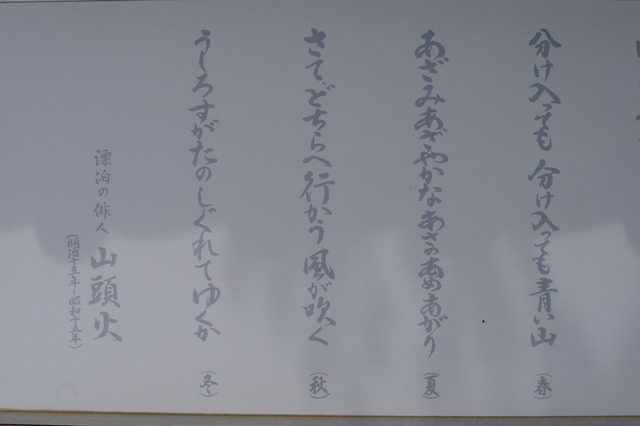 分け入っても 分け入っても青い山 (春)
あざみあざやかなあさのあめあがり (夏)
さて、どちらへ行かう風が吹く (秋)
うしろすがたのしぐれてゆくか (冬)
漂泊の俳人 山頭火
(明治十五年~昭和十五年)